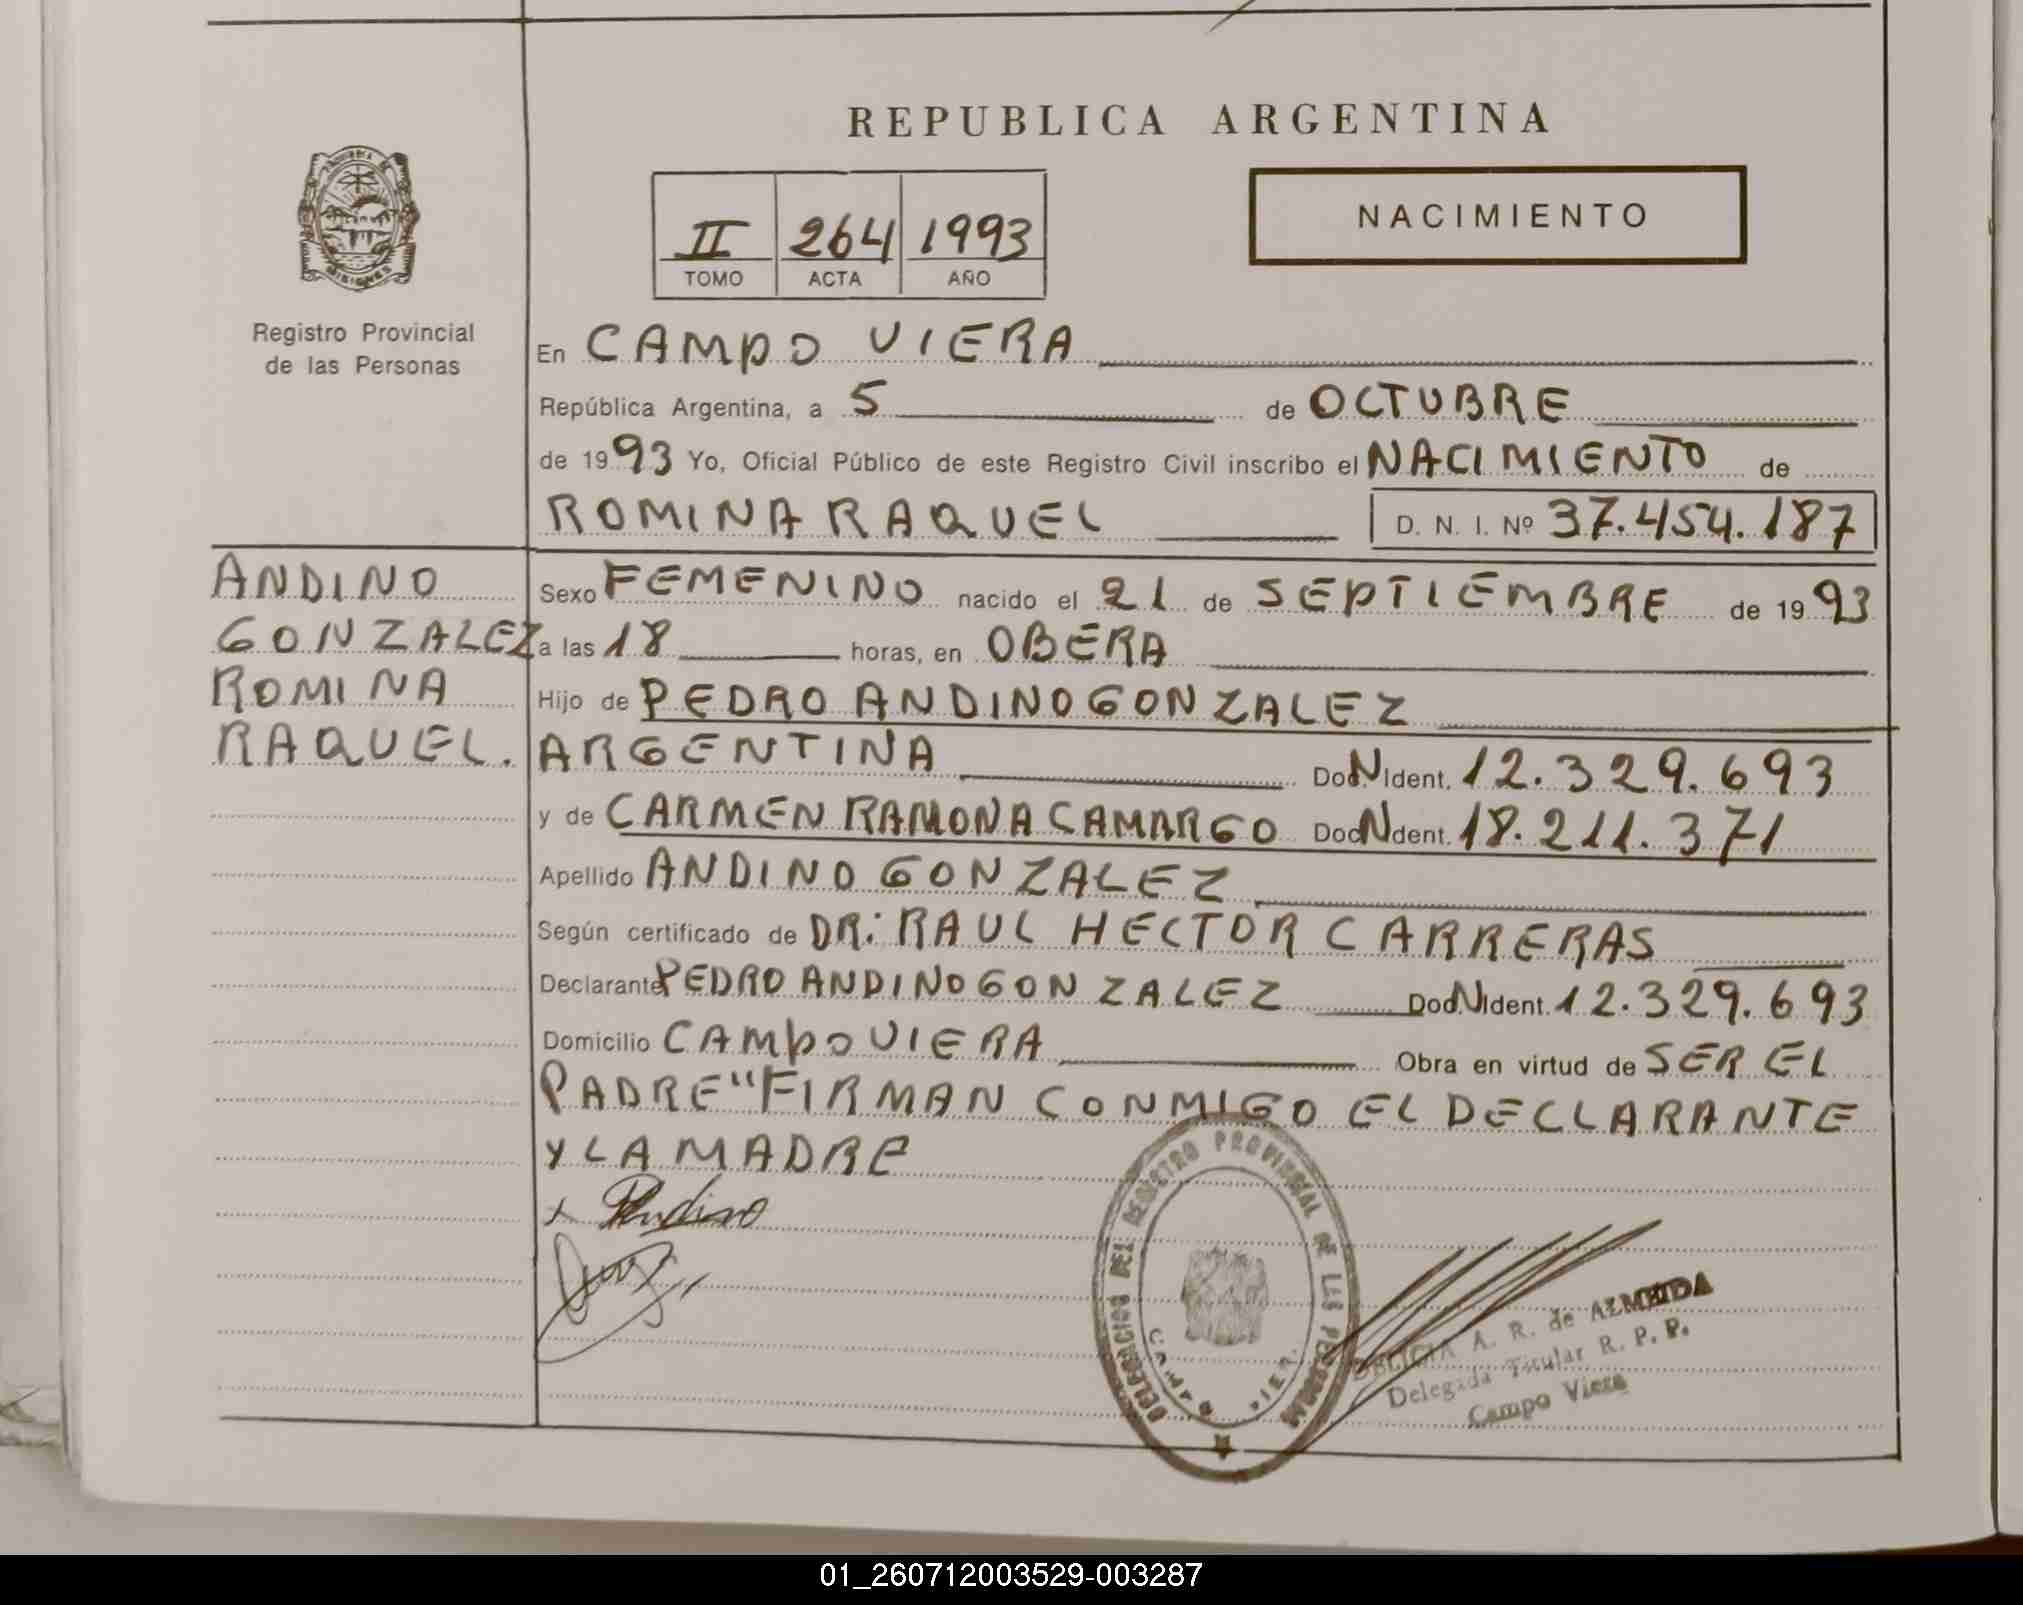 REPUBLICA ARGENTINA
NACIMIENTO
II 264 1993
TOMO ACTA AÑO
MISIONES
Registro Provincial
de las Personas
En CAMPO VIERA
República Argentina, a 5 de OCTUBRE
de 1993 Yo, Oficial Público de este Registro Civil inscribo el NACIMIENTO de
ROMINA RAQUEL D. N. I. Nº 37.454.187
ANDINO
GONZALEZ
ROMINA
RAQUEL.
Sexo FEMENINO nacido el 21 de SEPTIEMBRE de 1993
a las 18 horas, en OBERA
Hijo de PEDRO ANDINO GONZALEZ
ARGENTINA Do N Ident. 12.329.693
y de CARMEN RAMONA CAMARGO Doc N dent. 18.211.371
Apellido ANDINO GONZALEZ
Según certificado de DR: RAUL HECTOR CARRERAS
Declarante PEDRO ANDINO GONZALEZ Doc. N Ident. 12.329.693
Domicilio CAMPO VIERA Obra en virtud de SER EL
PADRE" FIRMAN CONMIGO EL DECLARANTE
Y LA MADRE
x Andino
DELEGACION DEL REGISTRO PROVINCIAL DE LAS PERSONAS
A. R. de ALMEIDA
Delegada Titular R. P. P.
Campo Viera
01_260712003529-003287